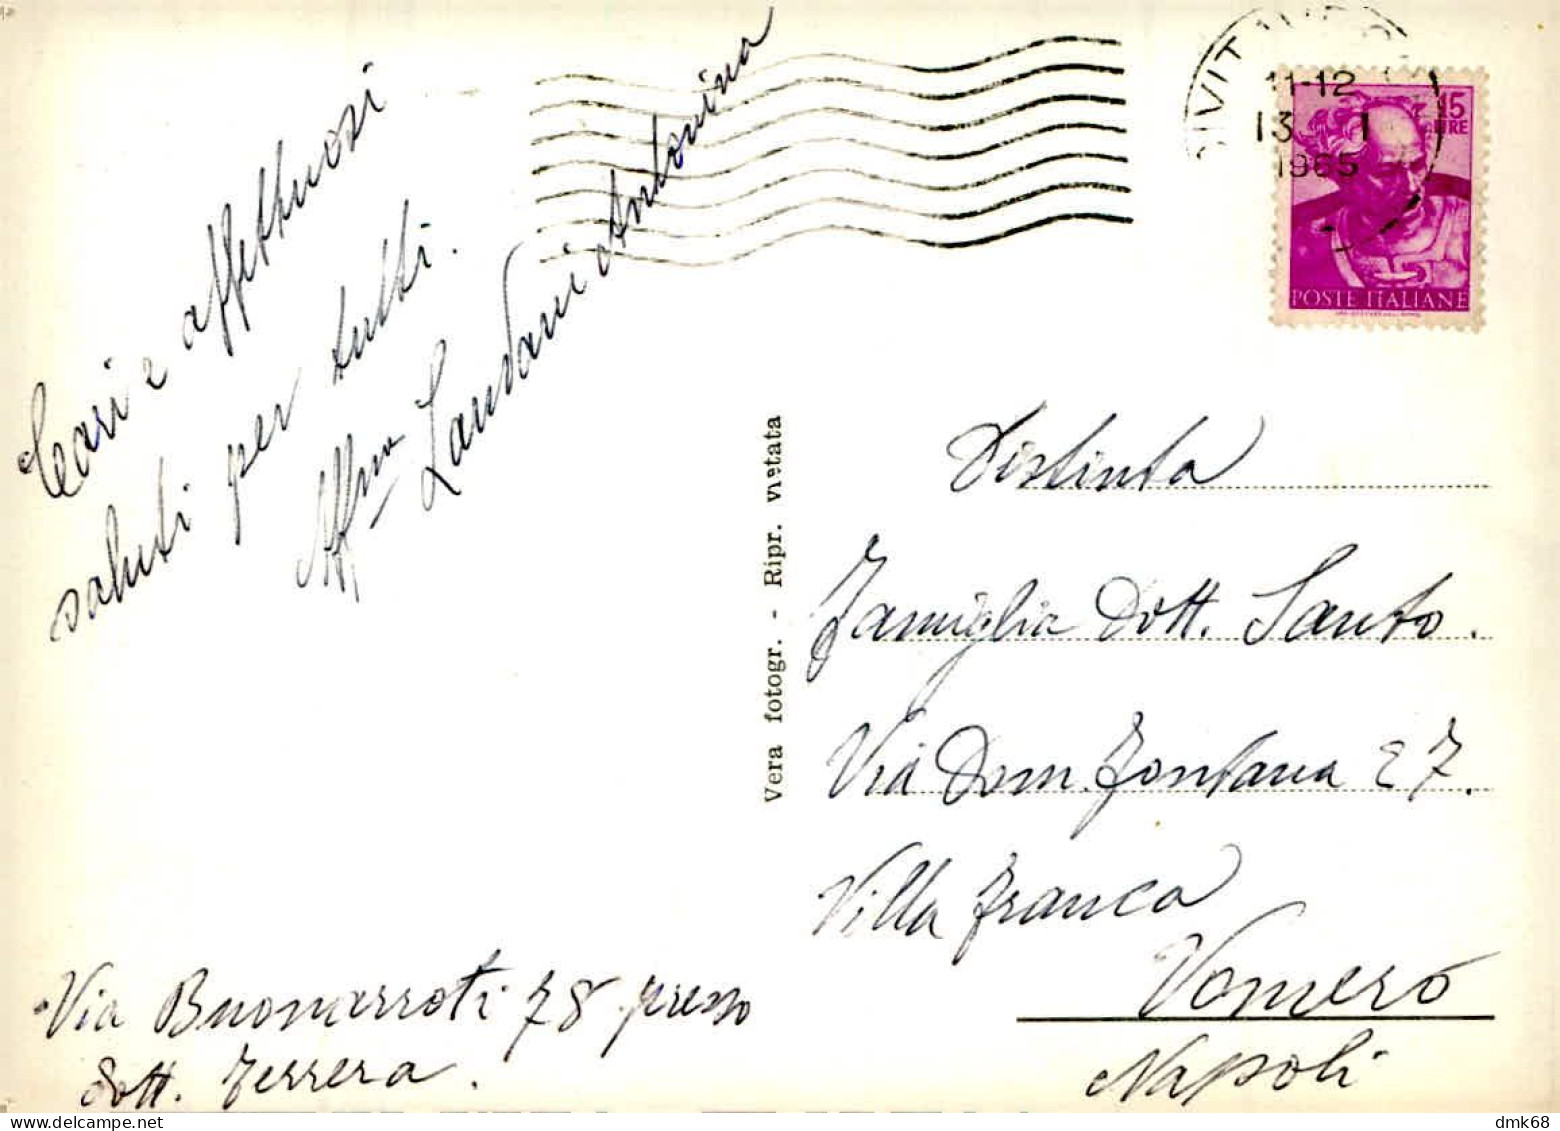 Cari e affettuosi
saluti per tutti.
Affma Landani Antonina
Via Buonarroti 78 presso
dott. Ferrera.
Vera fotogr. - Ripr. vietata
11-12
13 1
1965
15
LIRE
POSTE ITALIANE
Distinta
Famiglia Dott. Santo.
Via Dom. Fontana 27.
Villa Franca
Vomero
Napoli
dmk68